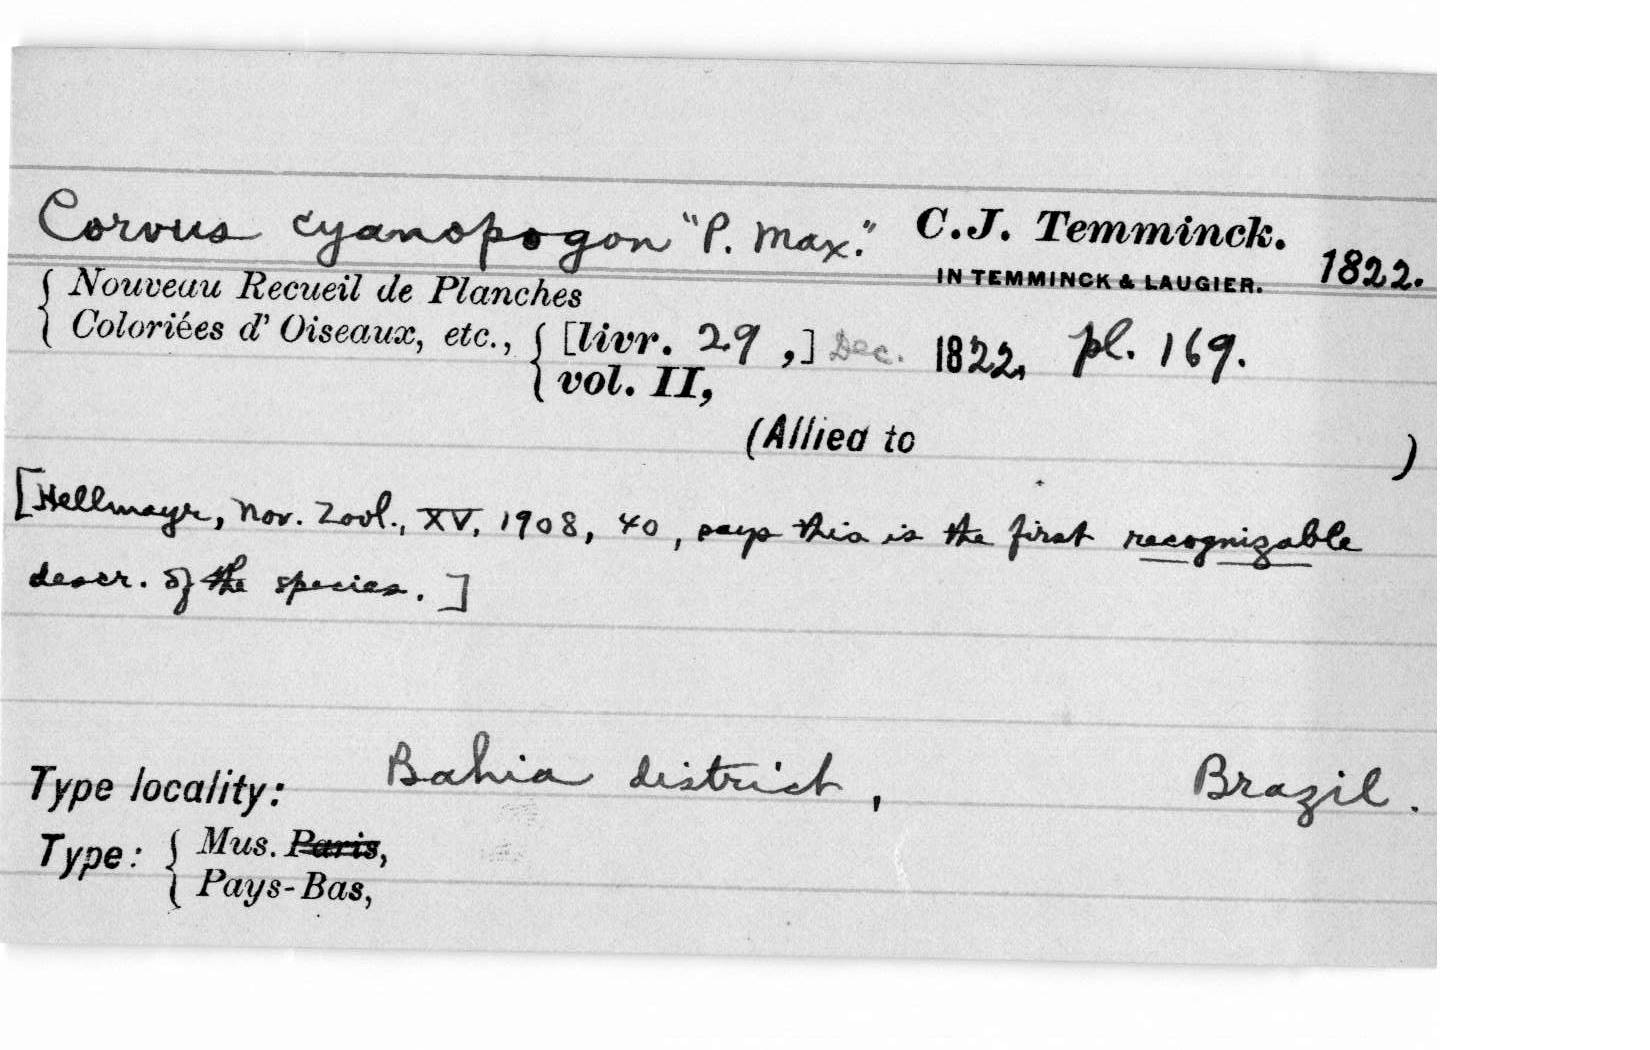 Corvus cyanopogon "P. Max." C.J. Temminck.
IN TEMMINCK & LAUGIER. 1822.
Nouveau Recueil de Planches
Coloriées d' Oiseaux, etc., [livr. 29,] Dec. 1822, pl. 169.
vol. II,
(Allied to )
[Hellmayr, Nov. Zool., XV, 1908, 40, says this is the first recognizable
descr. of the species.]
Type locality: Bahia district, Brazil.
Type: Mus. Paris,
Pays-Bas,